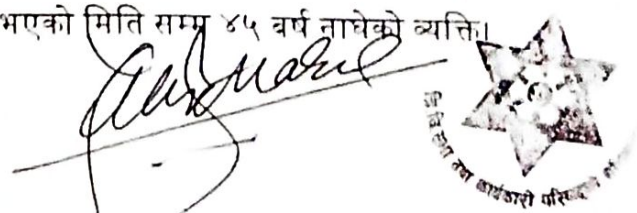 भएको मिति सम्म ४५ वर्ष नाघेको व्यक्ति।
तथा कार्यकारी